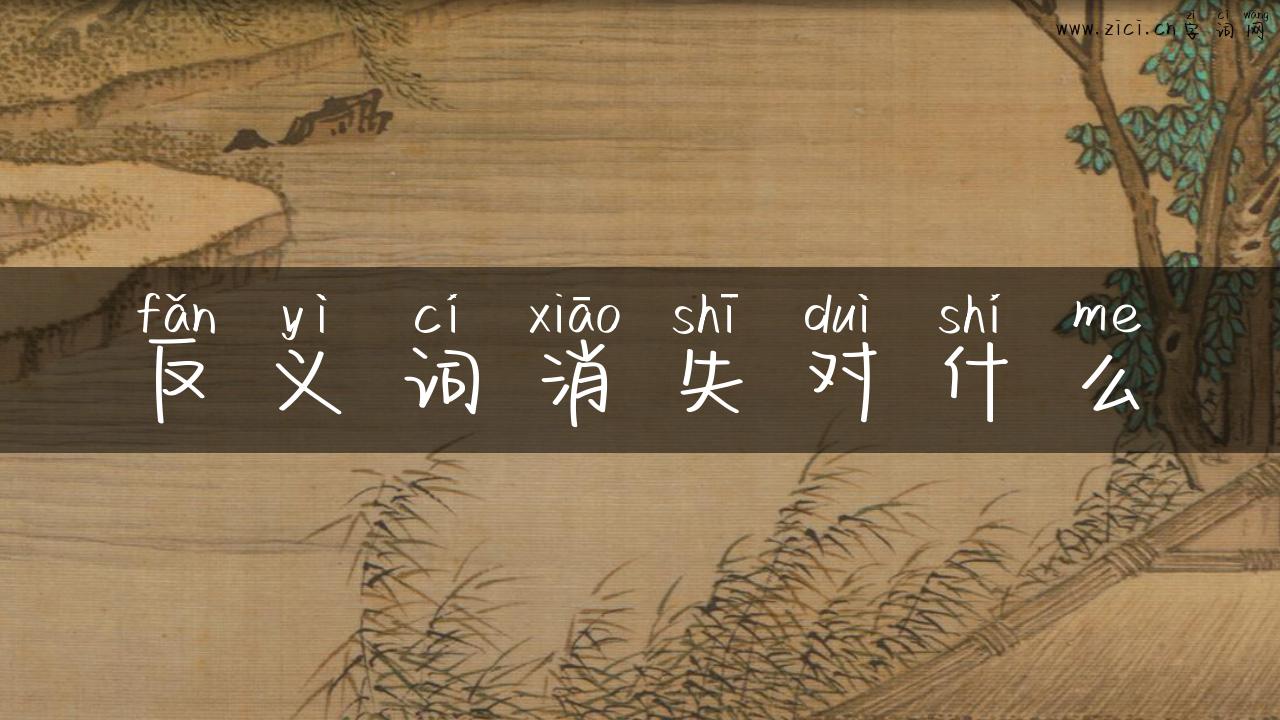 zì cí wǎng
www.zici.cn字词网
fǎn yì cí xiāo shī duì shí me
反义词消失对什么